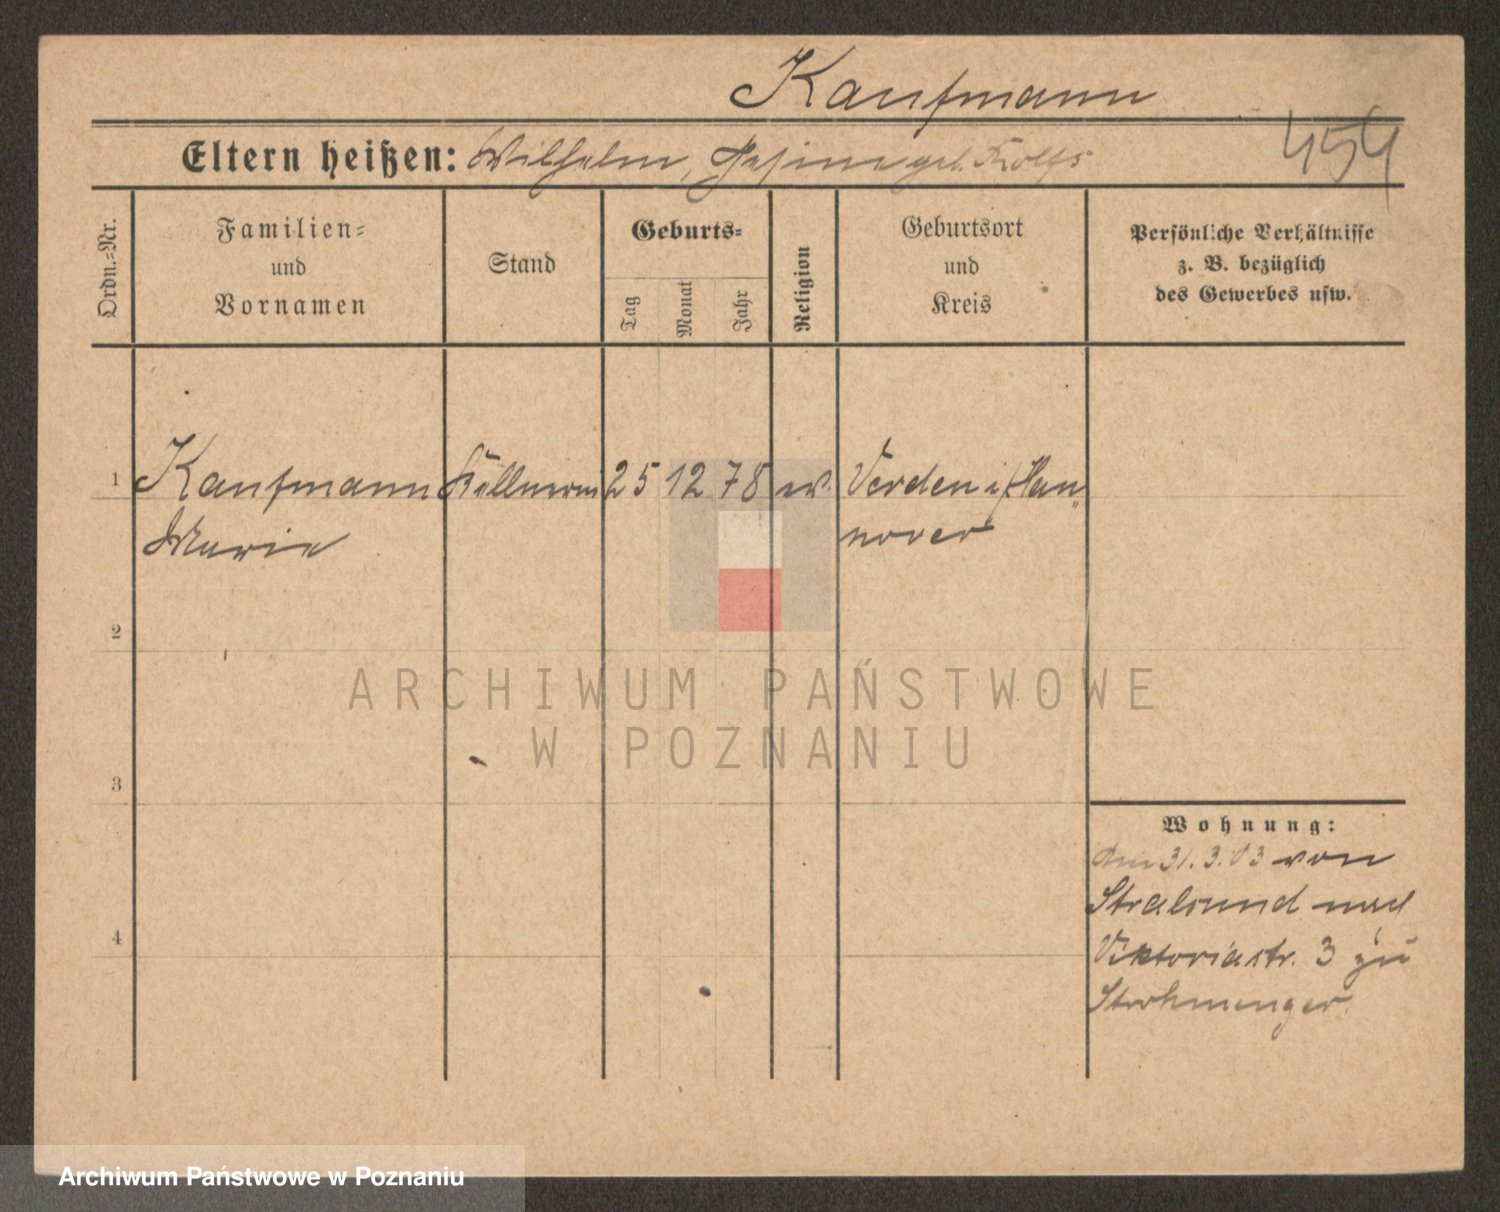 Kaufmann
454
Eltern heißen: Wilhelm, Gesine geb. Rolfs
Ordn.-Nr.
Familien- und Vornamen
Stand
Geburts-
Tag
Monat
Jahr
Religion
Geburtsort und Kreis
Persönliche Verhältnisse
z. B. bezüglich
des Gewerbes usw.
1 Kaufmann Kellnerin 25 12 78 ev. Verden i/Han„
Marie nover
2
3
4
Wohnung:
31.3.03 von
Stralsund nach
Viktoriastr. 3 zu
Strohmenger.
ARCHIWUM PAŃSTWOWE
W POZNANIU
Archiwum Państwowe w Poznaniu